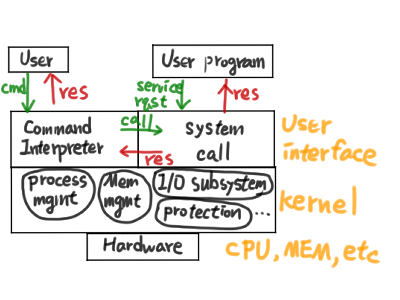 User
User program
cmd
res
service
rqst
res
Command
Interpreter
call
res
system
call
User
interface
process
mgmt
Mem
mgmt
I/O Subsystem
protection
...
kernel
Hardware
CPU, MEM, etc